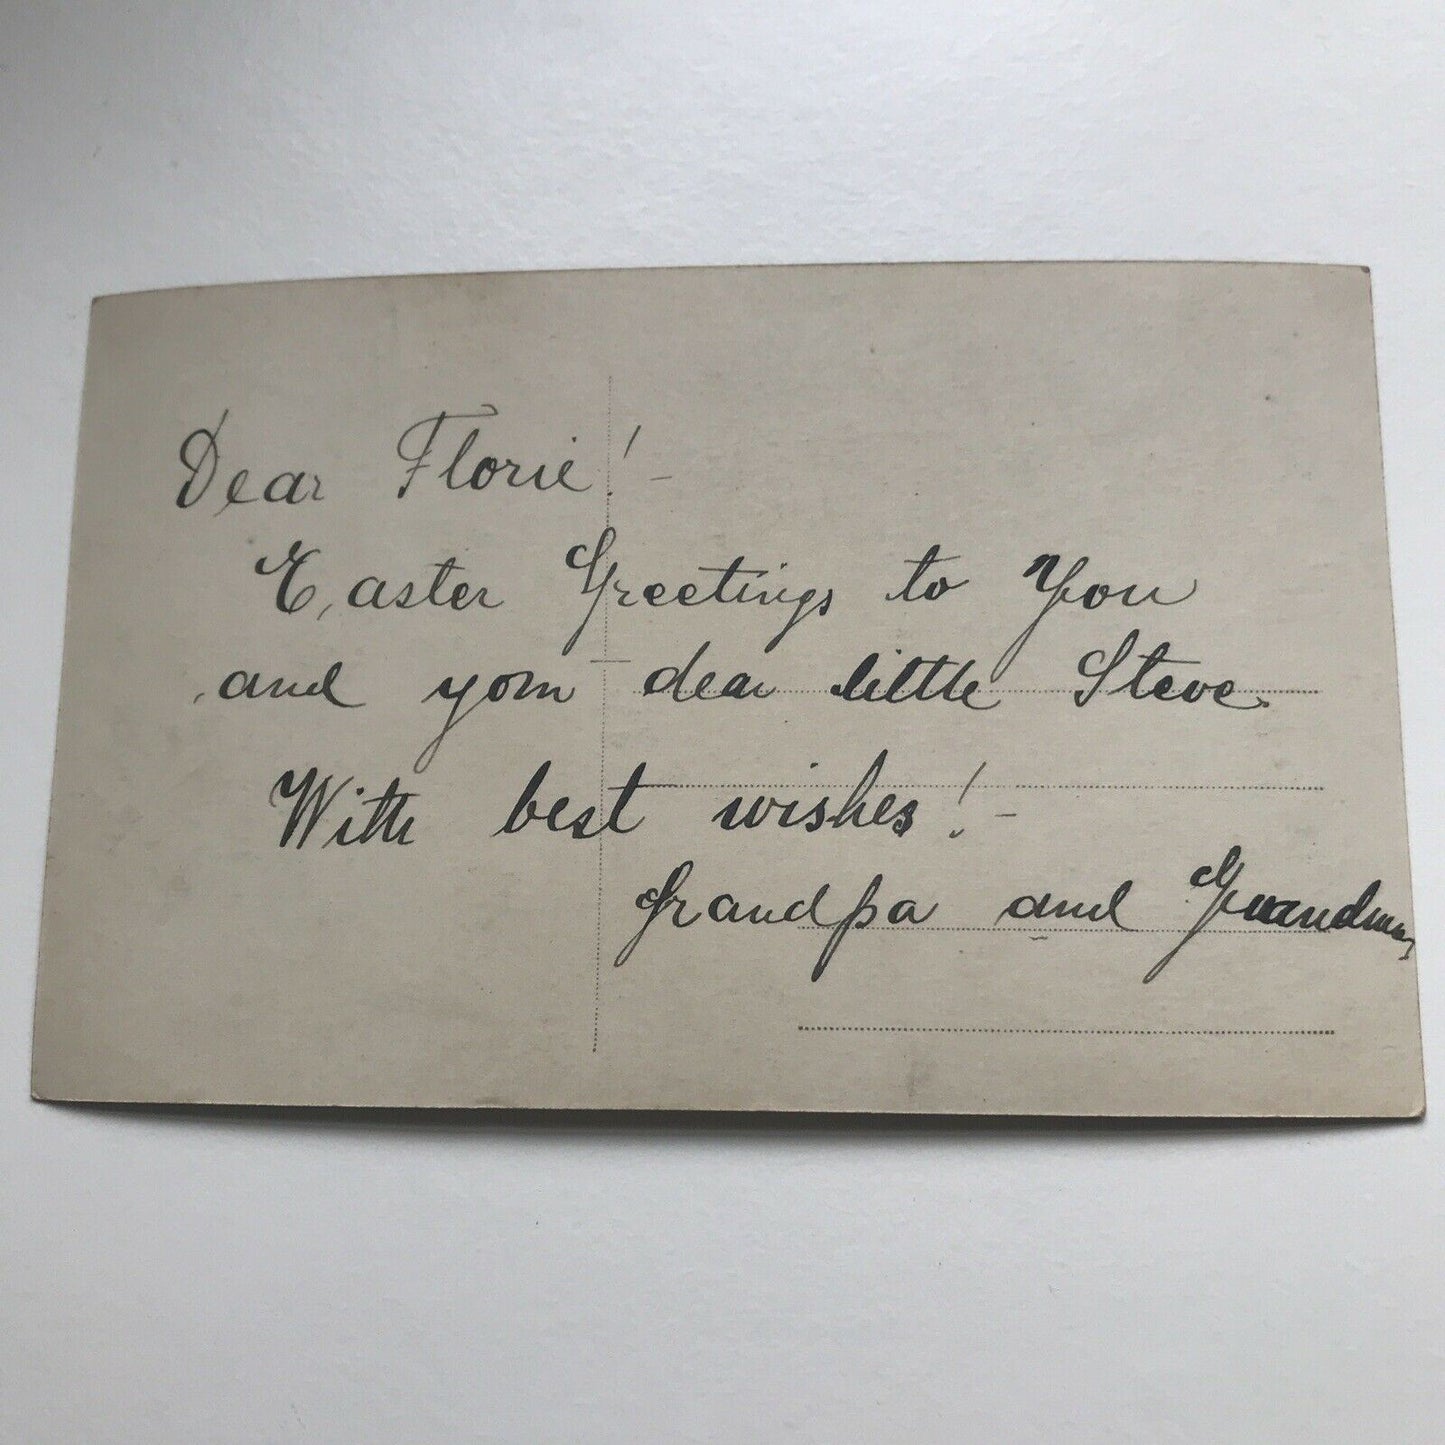 Dear Florie! -
Easter Greetings to You
and your dear little Steve.
With best wishes! -
Grandpa and Grandma